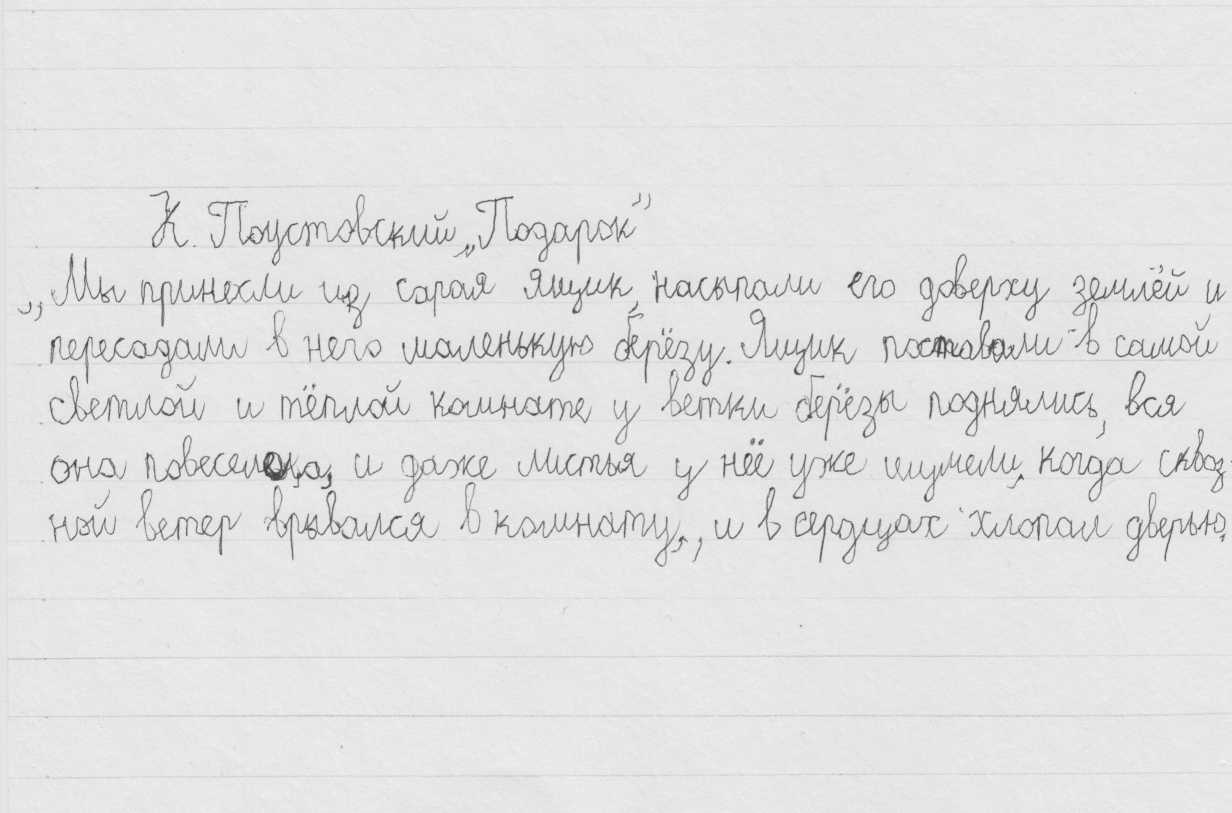 К. Паустовский „Подарок”
„Мы принесли из сарая ящик, насыпали его доверху землёй и
пересадили в него маленькую берёзу. Ящик поставили в самой
светлой и тёплой комнате у ветки берёзы поднялись, вся
она повеселела, и даже листья у неё уже шумели, когда сквоз-
ной ветер врывался в комнату, и в сердцах хлопал дверью.